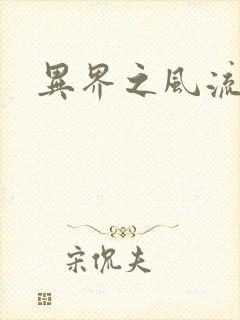 異界之風流
宋侃夫